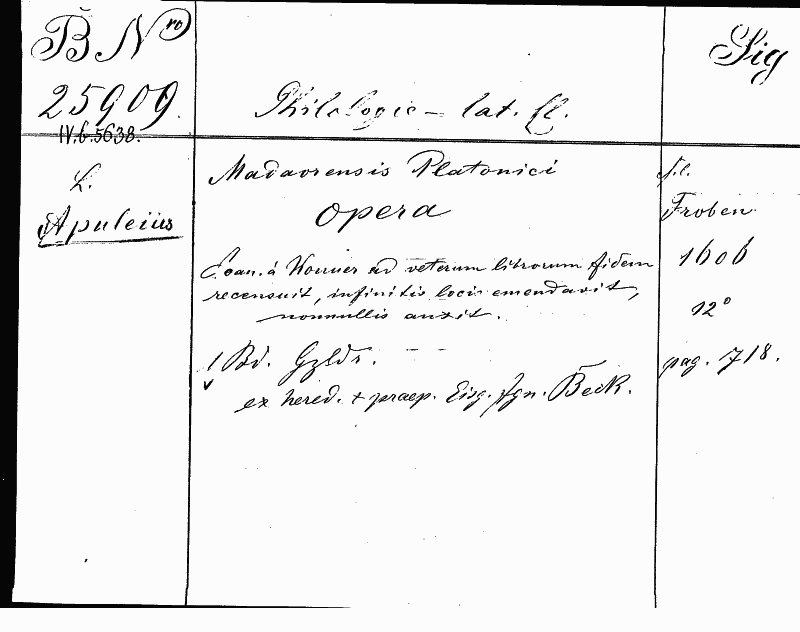 B Nro
Sig
25909.
Philologie - lat. Cl.
IV.b.5638.
Madavrensis Platonici
s.l.
L.
Opera
Froben
Apuleius
Joan. à Wouuer ad veterum librorum fidem
1606
recensuit, infinitis locis emendavit,
nonnullis auxit.
12°
1 Bd. Gzldr.
pag. 718.
ex hered. + praep. Eisg. Ign. Beck.